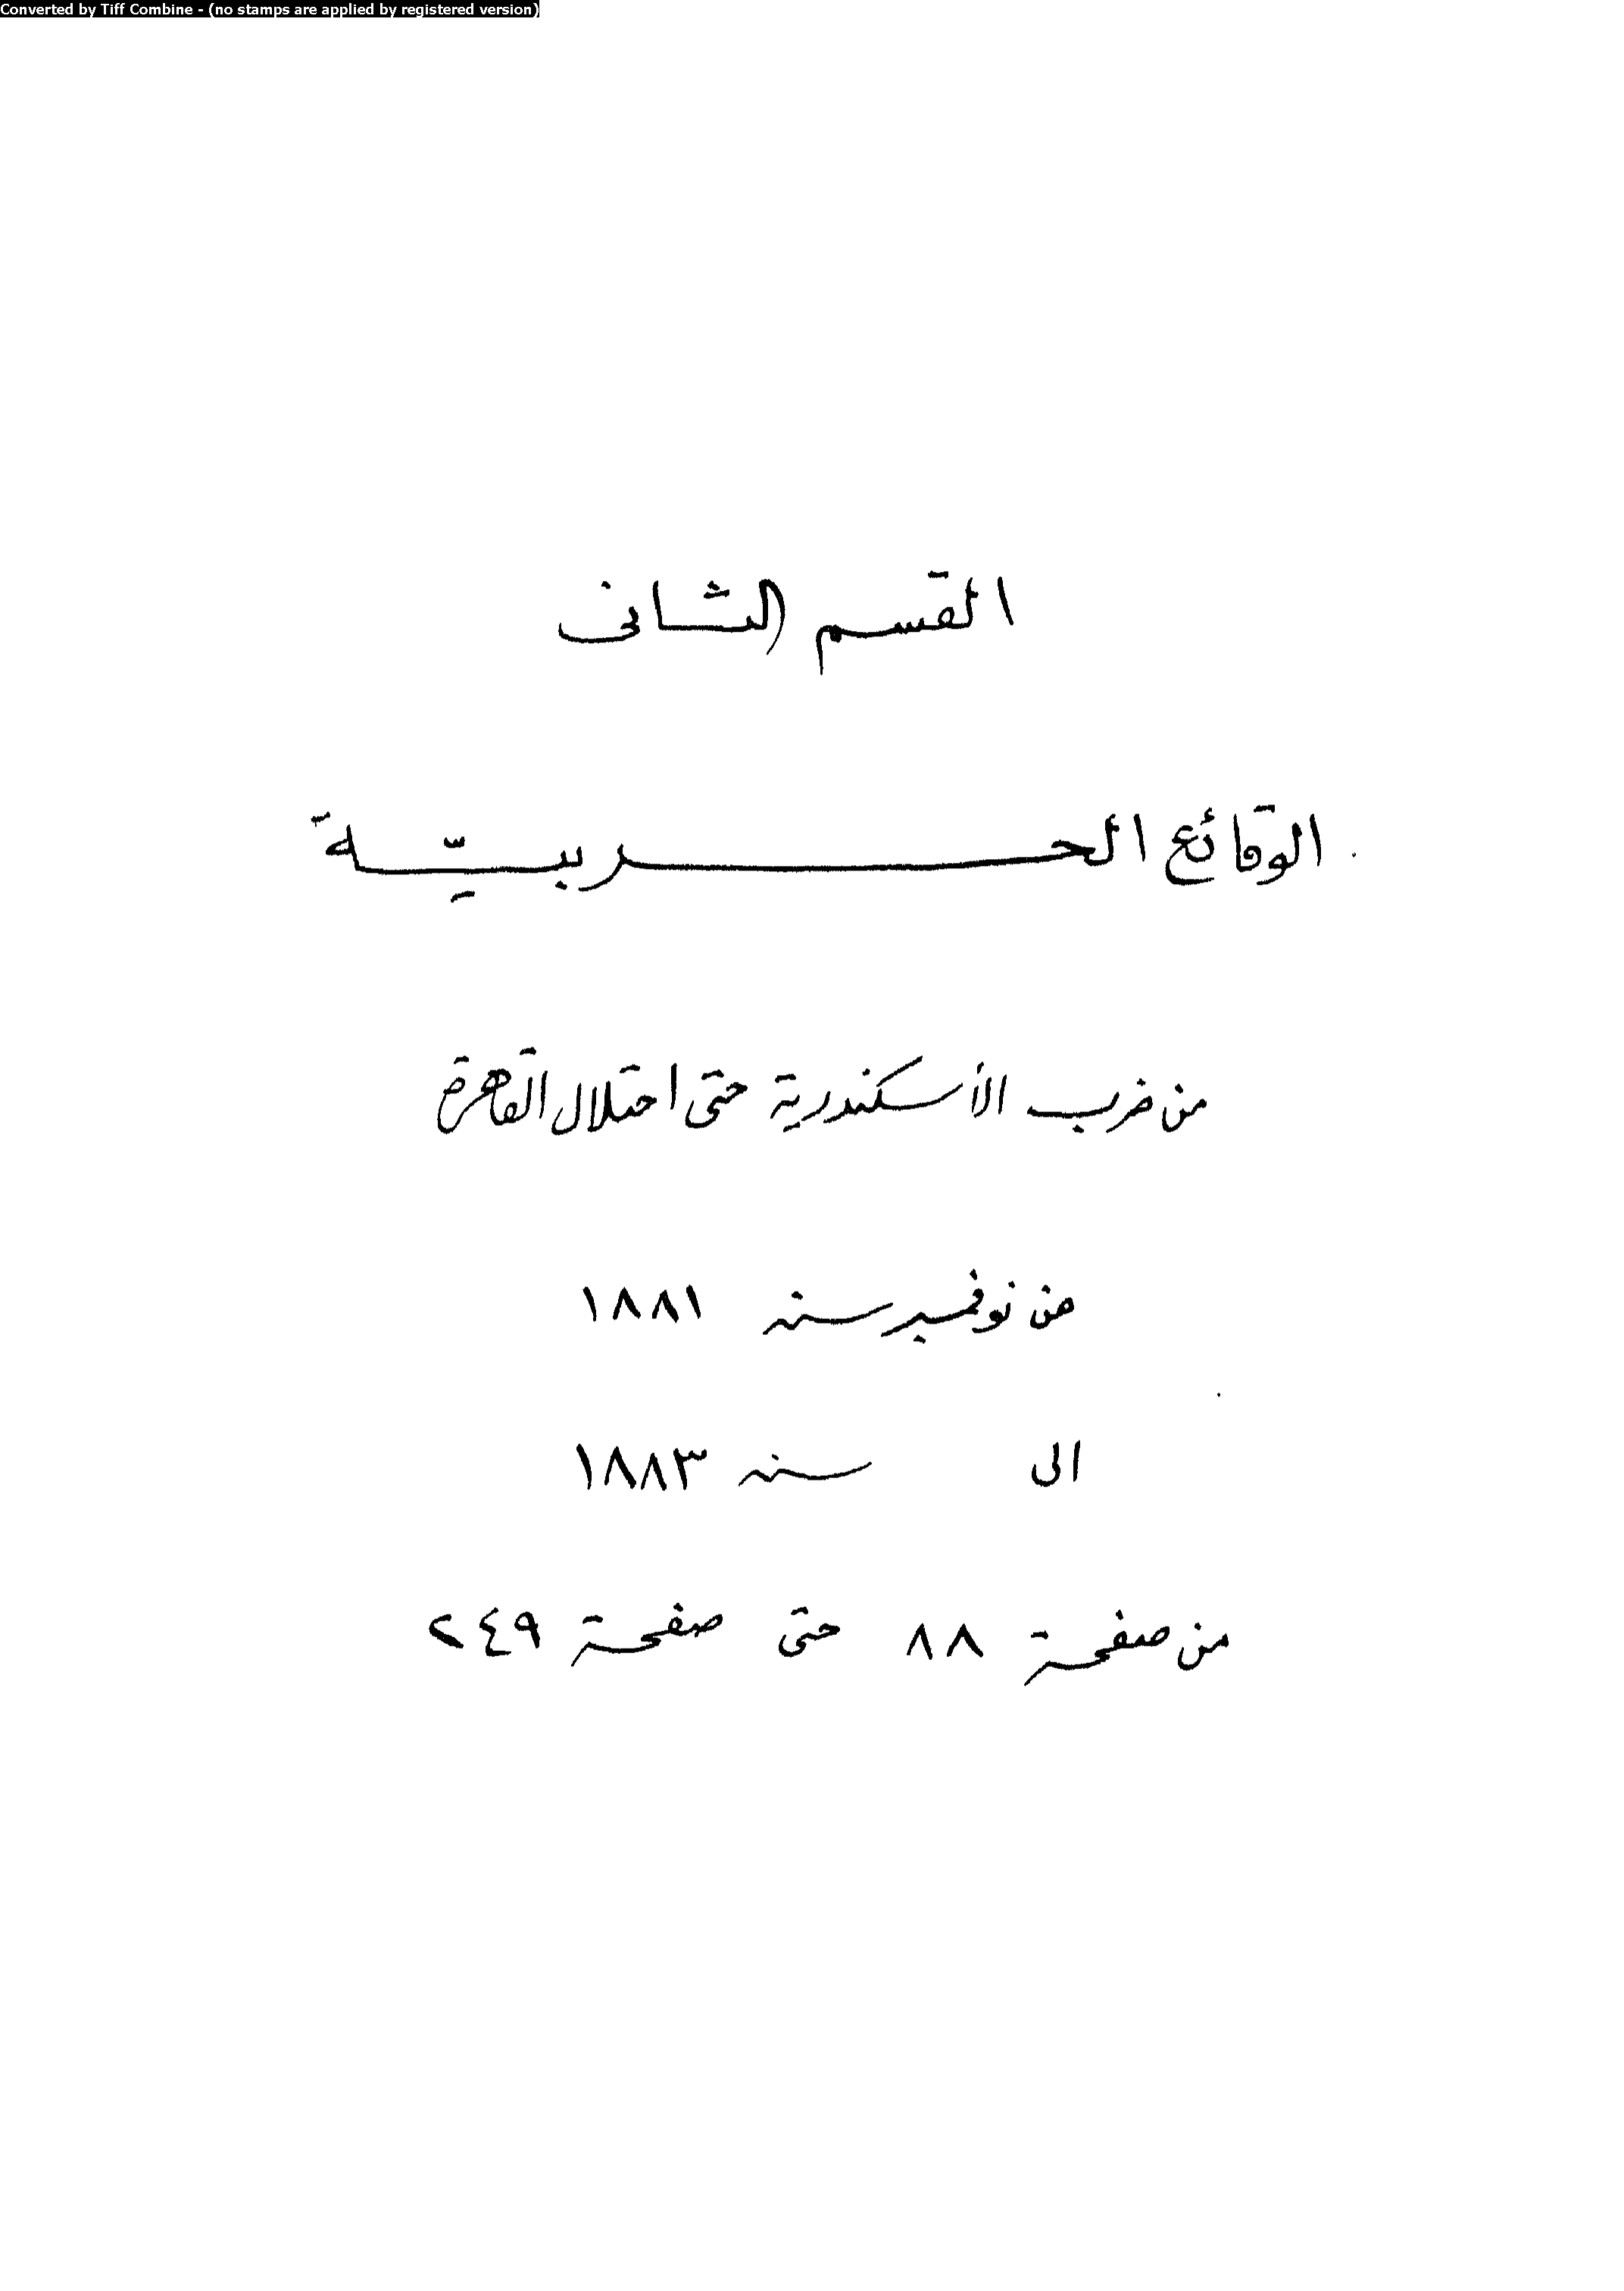 Converted by Tiff Combine - (no stamps are applied by registered version)
القسم الثانى
الوقائع الحربيّة
من ضرب الأسكندرية حتى احتلال القاهرة
من نوفمبر سنه ١٨٨١
الى سنه ١٨٨٣
من صفحة ٨٨ حتى صفحة ٢٤٩